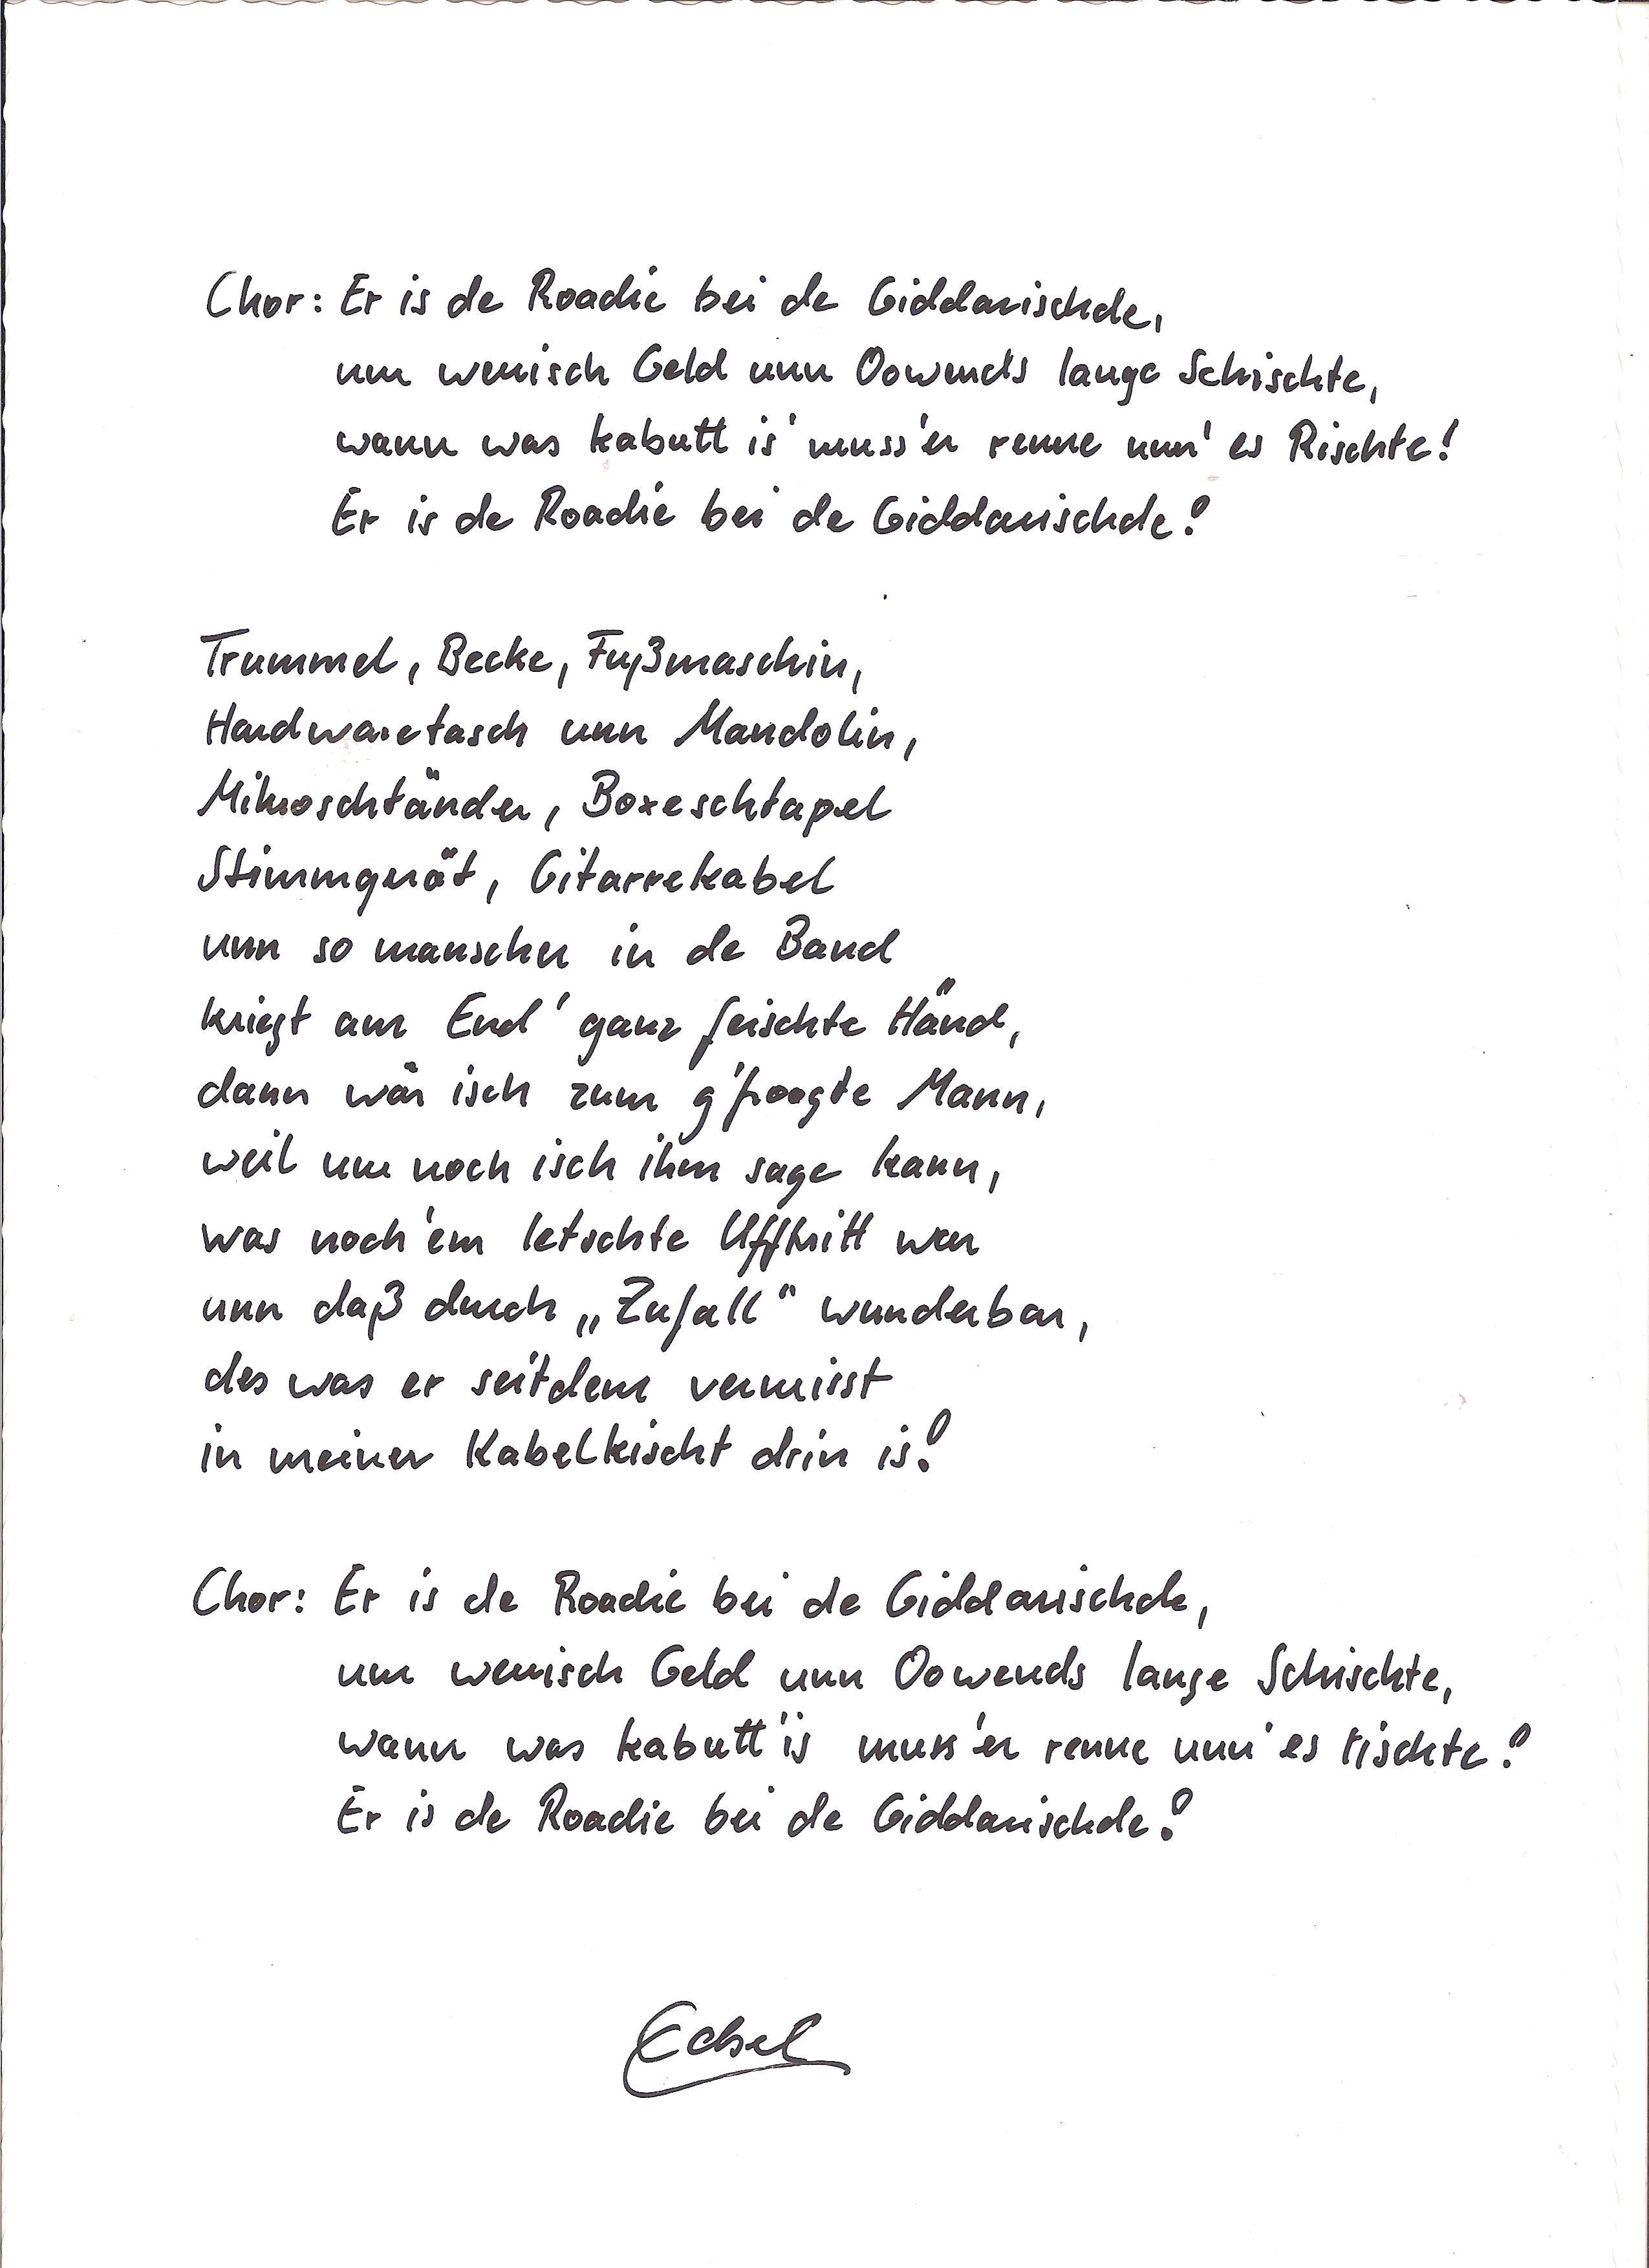 Chor: Er is de Roadie bei de Giddarischde,
um wenisch Geld unn Oowends lange Schischte,
wann was kabutt is' muss'er renne unn' es Rischte!
Er is de Roadie bei de Giddarischde!
Trummel, Becke, Fußmaschin,
Hardwaretasch unn Mandolin,
Mikroschtänder, Boxeschtapel
Stimmgerät, Gitarrekabel
unn so manscher in de Band
kriegt am End' ganz feischte Händ,
dann wär isch zum g'froogte Mann,
weil nur noch isch ihm sage kann,
was noch'em letschte Ufftritt war
unn daß durch „Zufall“ wunderbar,
des was er seitdem vermisst
in meiner Kabelkischt drin is!
Chor: Er is de Roadie bei de Giddarischde,
um wenisch Geld unn Oowends lange Schischte,
wann was kabutt'is muss'er renne unn' es rischte!
Er is de Roadie bei de Giddarischde!